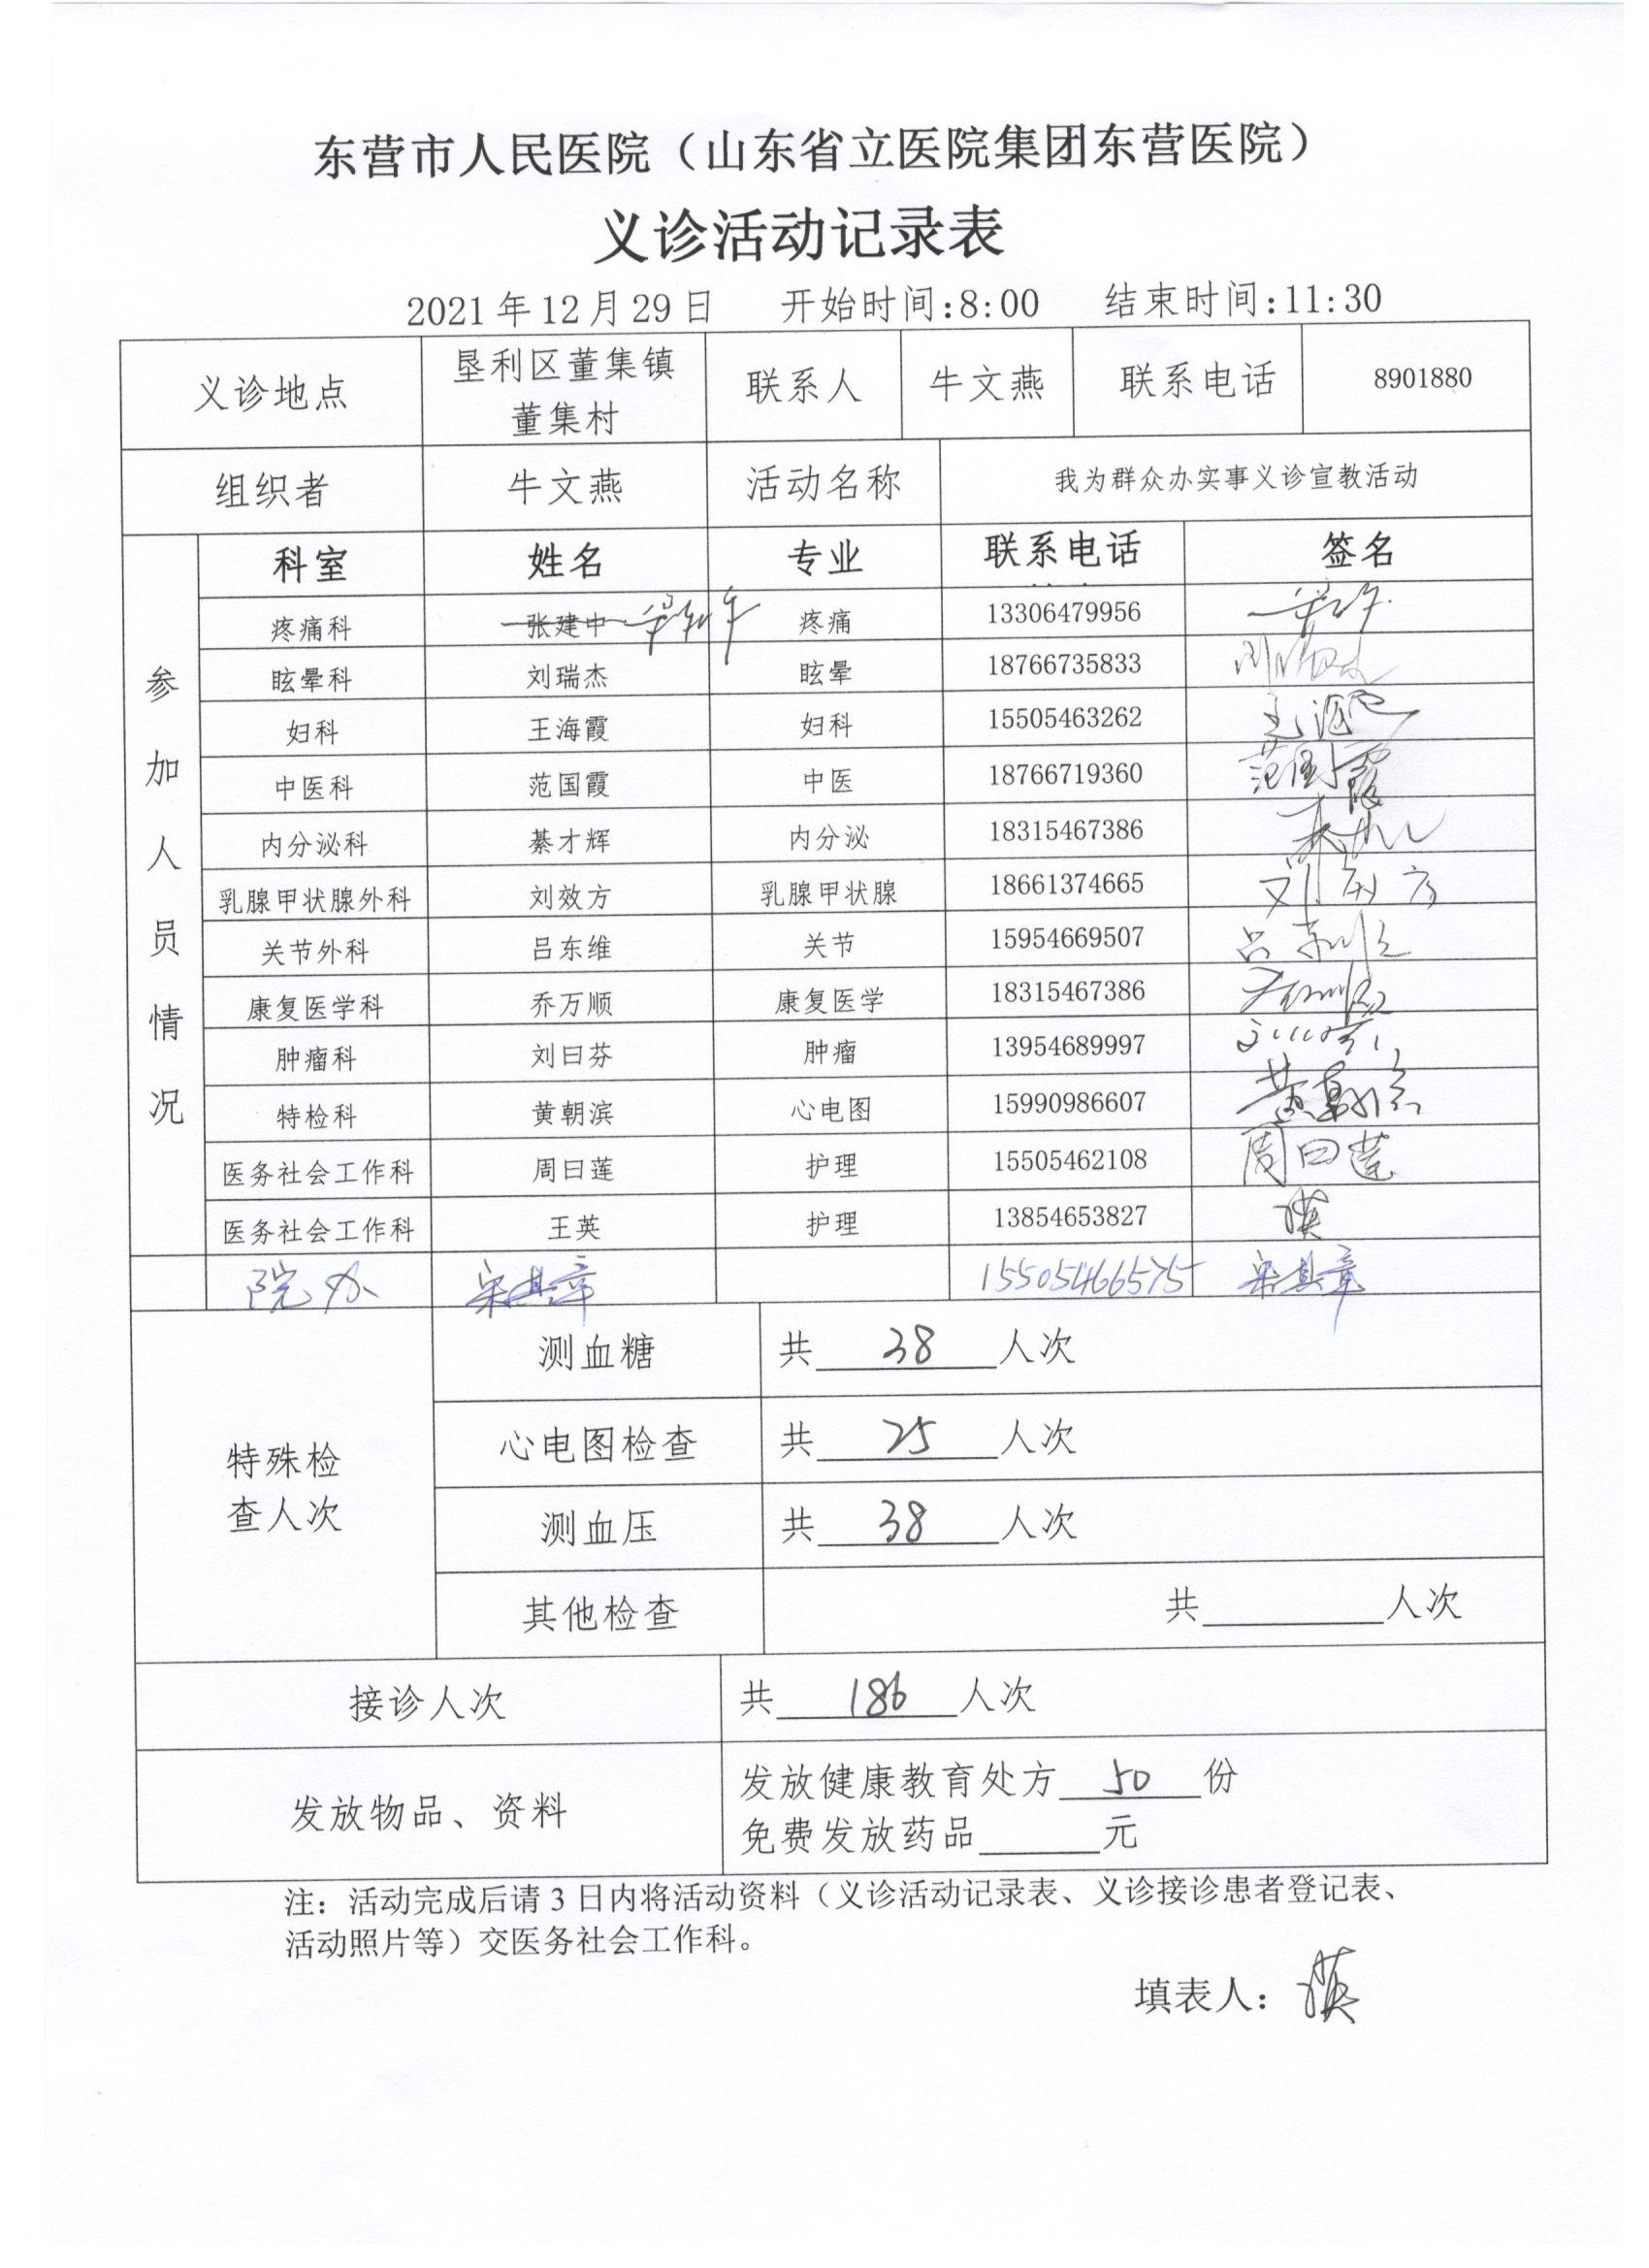 东营市人民医院（山东省立医院集团东营医院）
义诊活动记录表
2021年12月29日 开始时间:8:00 结束时间:11:30
义诊地点 垦利区董集镇董集村 联系人 牛文燕 联系电话 8901880
组织者 牛文燕 活动名称 我为群众办实事义诊宣教活动
参加人员情况
科室 姓名 专业 联系电话 签名
疼痛科 张建中 疼痛 13306479956
眩晕科 刘瑞杰 眩晕 18766735833 刘瑞杰
妇科 王海霞 妇科 15505463262 王海霞
中医科 范国霞 中医 18766719360 范国霞
内分泌科 綦才辉 内分泌 18315467386
乳腺甲状腺外科 刘效方 乳腺甲状腺 18661374665 刘效方
关节外科 吕东维 关节 15954669507 吕东维
康复医学科 乔万顺 康复医学 18315467386 乔万顺
肿瘤科 刘曰芬 肿瘤 13954689997
特检科 黄朝滨 心电图 15990986607 黄朝滨
医务社会工作科 周曰莲 护理 15505462108 周曰莲
医务社会工作科 王英 护理 13854653827 王英
院办 宋其章 15505466575 宋其章
特殊检查人次
测血糖 共 38 人次
心电图检查 共 25 人次
测血压 共 38 人次
其他检查 共 人次
接诊人次 共 186 人次
发放物品、资料
发放健康教育处方 50 份
免费发放药品 元
注：活动完成后请3日内将活动资料（义诊活动记录表、义诊接诊患者登记表、
活动照片等）交医务社会工作科。
填表人：王英